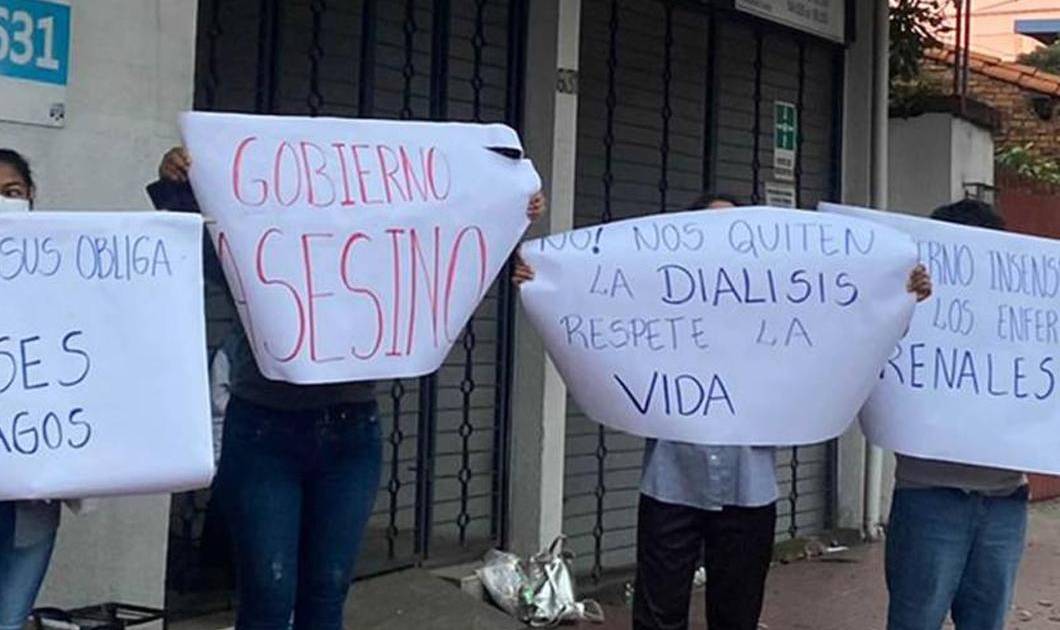 631
SUS OBLIGA
SES
AGOS
GOBIERNO
ASESINO
NO! NOS QUITEN
LA DIALISIS
RESPETE LA
VIDA
ERNO INSENS
LOS ENFER
RENALES